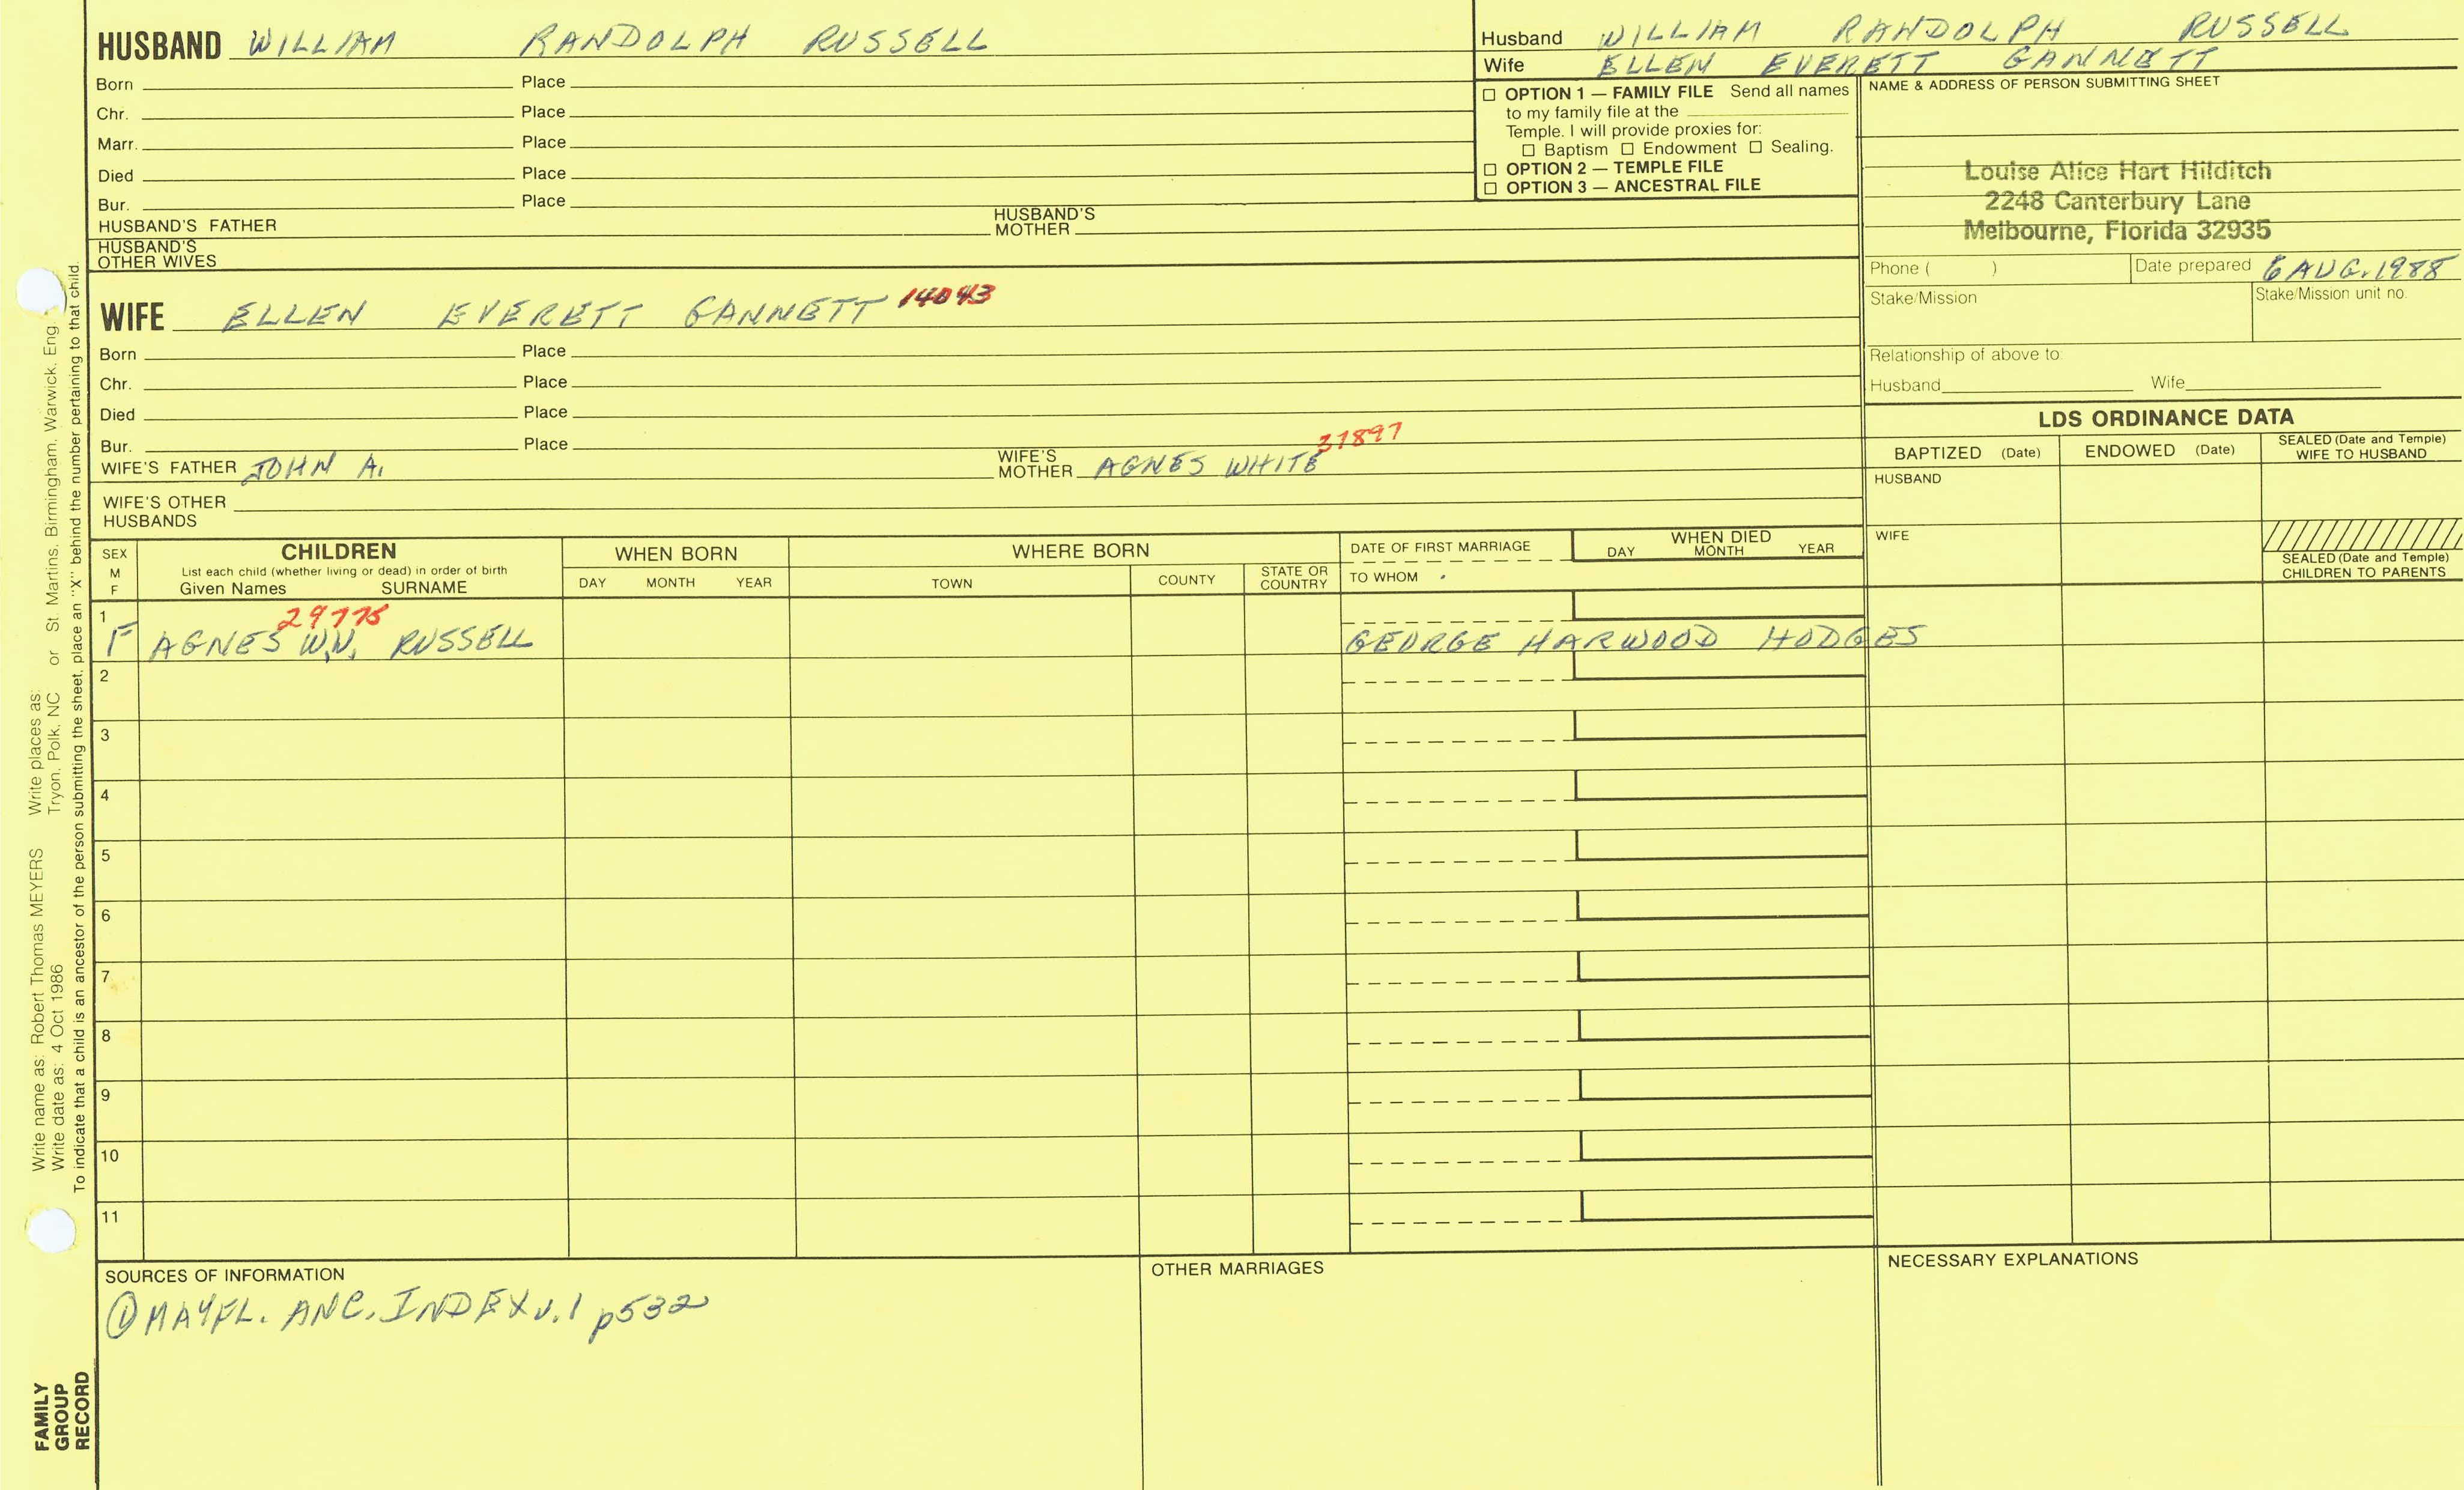 HUSBAND WILLIAM RANDOLPH RUSSELL
Born Place
Chr. Place
Marr. Place
Died Place
Bur. Place
HUSBAND'S FATHER HUSBAND'S MOTHER
HUSBAND'S OTHER WIVES
Husband WILLIAM RANDOLPH RUSSELL
Wife ELLEN EVERETT GANNETT
☐ OPTION 1 — FAMILY FILE Send all names
to my family file at the
Temple. I will provide proxies for:
☐ Baptism ☐ Endowment ☐ Sealing.
☐ OPTION 2 — TEMPLE FILE
☐ OPTION 3 — ANCESTRAL FILE
NAME & ADDRESS OF PERSON SUBMITTING SHEET
Louise Alice Hart Hilditch
2248 Canterbury Lane
Melbourne, Florida 32935
Phone ( ) Date prepared 6 AUG. 1988
Stake/Mission Stake/Mission unit no.
Relationship of above to:
Husband Wife
WIFE ELLEN EVERETT GANNETT 14043
Born Place
Chr. Place
Died Place
Bur. Place
31897
WIFE'S FATHER JOHN A. WIFE'S MOTHER AGNES WHITE
WIFE'S OTHER
HUSBANDS
LDS ORDINANCE DATA
BAPTIZED (Date) ENDOWED (Date) SEALED (Date and Temple) WIFE TO HUSBAND
HUSBAND
WIFE
SEALED (Date and Temple)
CHILDREN TO PARENTS
SEX M F
CHILDREN
List each child (whether living or dead) in order of birth
Given Names SURNAME
WHEN BORN
DAY MONTH YEAR
WHERE BORN
TOWN COUNTY STATE OR COUNTRY
DATE OF FIRST MARRIAGE
TO WHOM
WHEN DIED
DAY MONTH YEAR
1 29775
F AGNES W.W. RUSSELL GEORGE HARWOOD HODGES
2
3
4
5
6
7
8
9
10
11
SOURCES OF INFORMATION
① MAYFL. ANC. INDEX v.1 p532
OTHER MARRIAGES
NECESSARY EXPLANATIONS
Write name as: Robert Thomas MEYERS Write places as:
Write date as: 4 Oct 1986 Tryon, Polk, NC or St. Martins, Birmingham, Warwick, Eng.
To indicate that a child is an ancestor of the person submitting the sheet, place an "X" behind the number pertaining to that child.
FAMILY
GROUP
RECORD